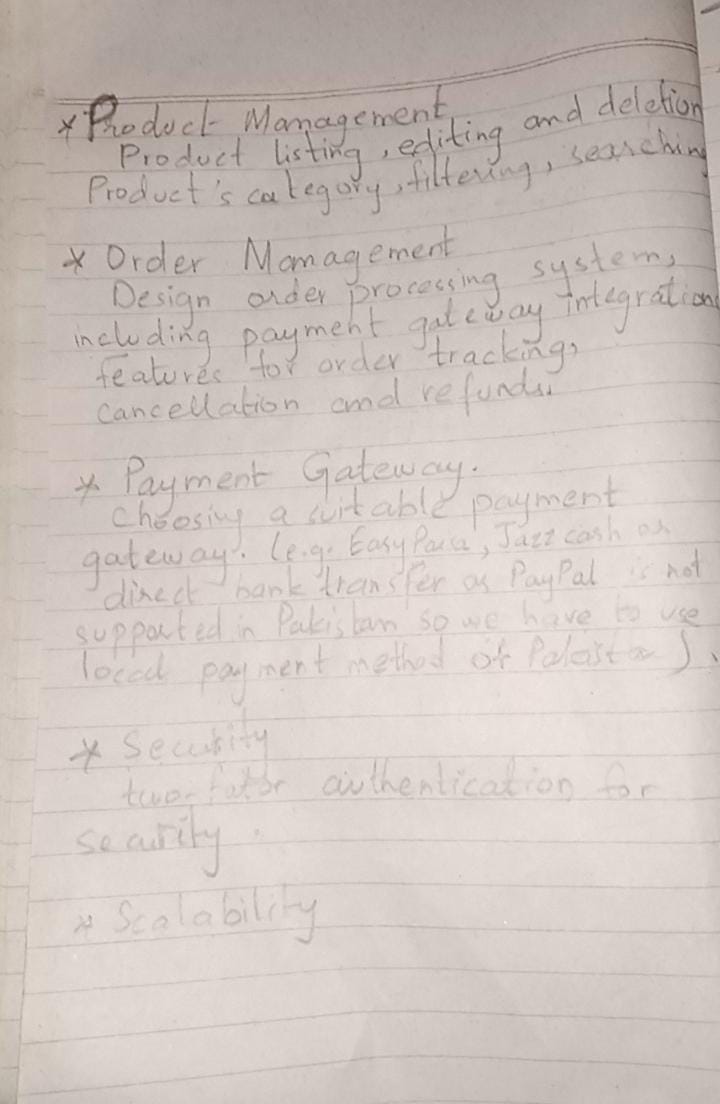 * Product Management
Product listing, editing and deletion
Product's category, filtering, searching
* Order Management
Design order processing system,
including payment gateway integration
features for order tracking,
cancellation and refunds.
* Payment Gateway.
Choosing a suitable payment
gateway. (e.g. EasyPaisa, Jazz cash or
direct bank transfer as PayPal is not
supported in Pakistan so we have to use
local payment method of Pakistan).
* Security
two-fator authentication for
security.
* Scalability